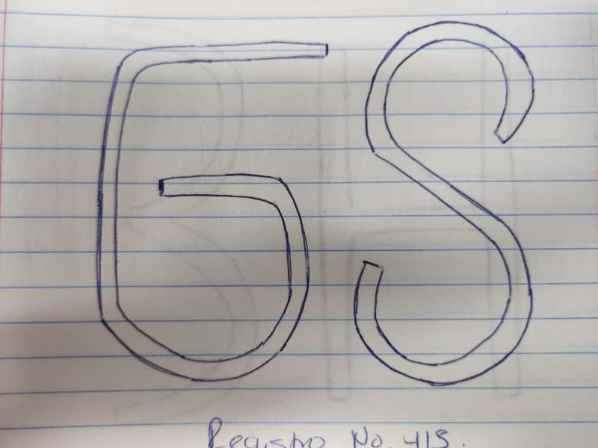 GS
Registro No. 418.